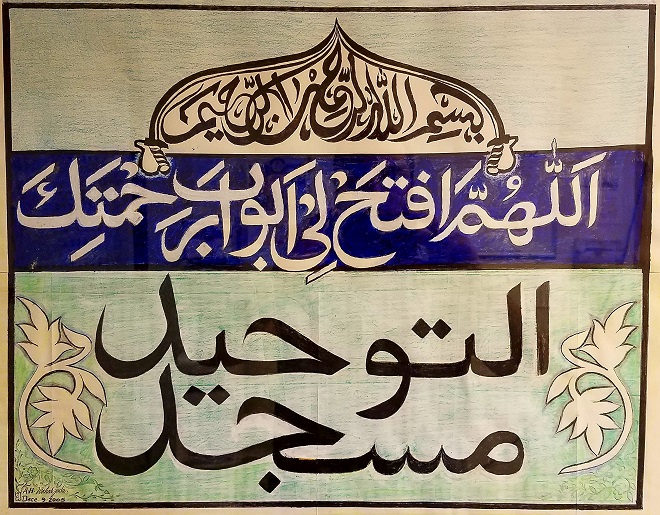 بِسْمِ اللهِ الرَّحْمٰنِ الرَّحِيمِ
اَللّٰهُمَّ افْتَحْ لِىْ اَبْوَابَ رَحْمَتِكَ
التوحيد
مسجد
Dec 9 2005